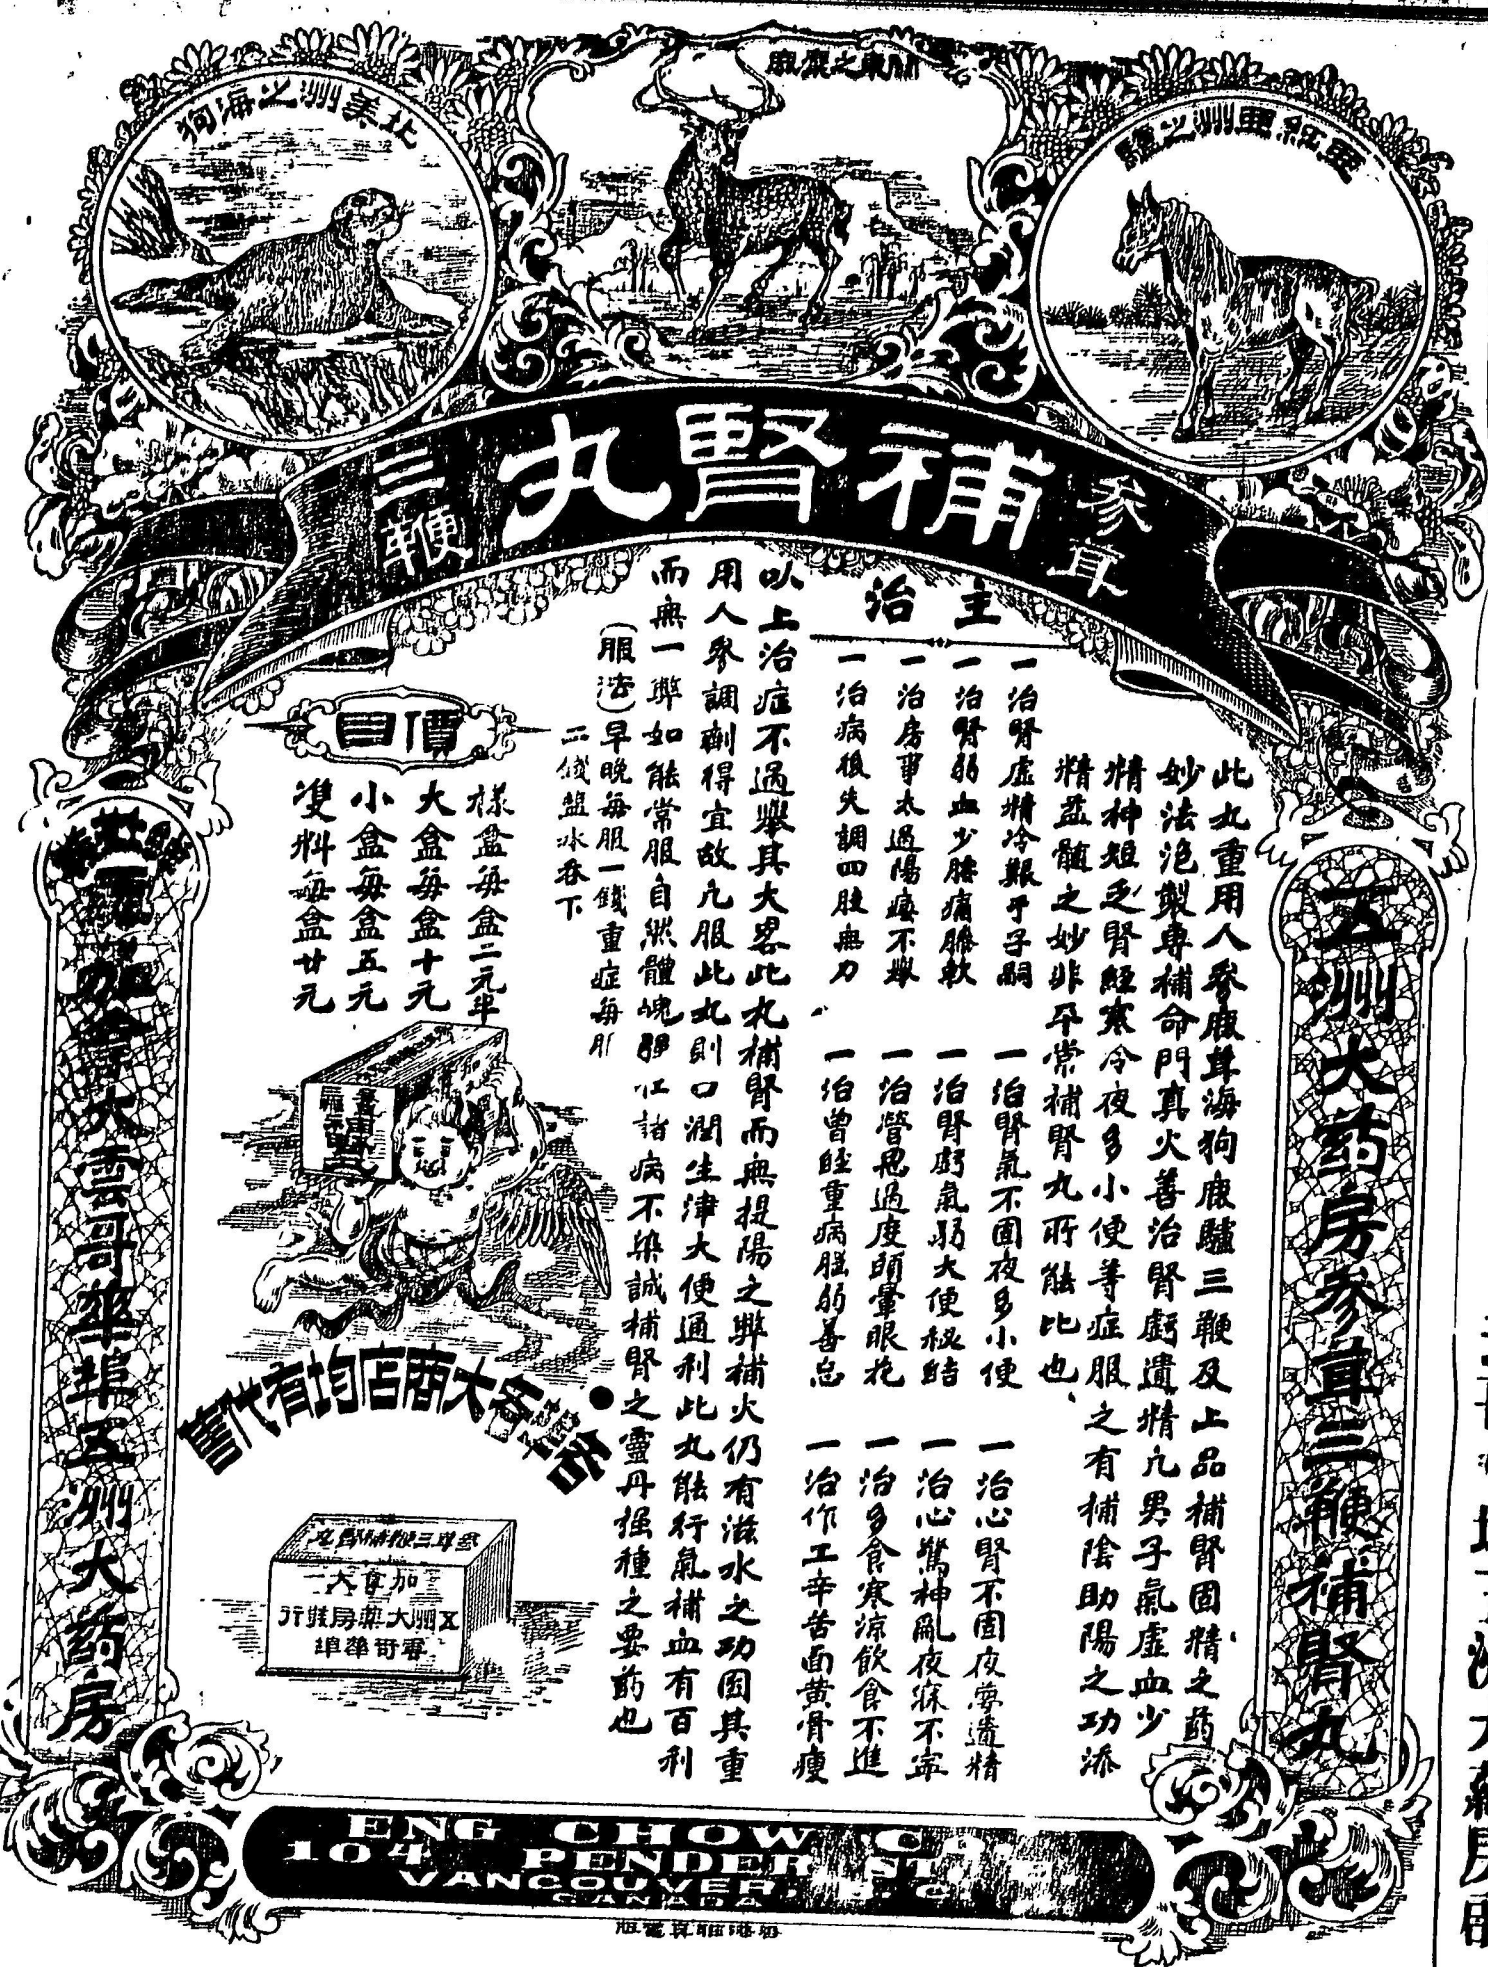 北美洲之海狗
關東之鹿
洲之驢
參茸
補腎丸
三鞭
五洲大药房參茸三鞭補腎丸
此丸重用人參鹿茸海狗鹿驢三鞭及上品補腎固精之药
妙法泡製專補命門真火善治腎虧遺精凢男子氣虛血少
精神短乏腎經寒冷夜多小便等症服之有補陰助陽之功添
精益髓之妙非平常補腎丸所能比也
主治
一治腎虛精冷艱于子嗣
一治腎弱血少腰痛膝軟
一治房事太過陽痿不舉
一治病後失調四肢無力
一治腎氣不固夜多小便
一治腎虧氣弱大便秘結
一治營思過度頭暈眼花
一治曾經重病脞弱善忘
一治心腎不固夜夢遺精
一治心驚神亂夜寐不寧
一治多食寒涼飲食不進
一治作工辛苦面黃骨瘦
以上治症不過舉其大畧此丸補腎而無提陽之弊補火仍有滋水之功因其重
用人參調劑得宜故凢服此丸則口潤生津大便通利此丸能行氣補血有百利
而無一弊如能常服自然體魄強壯諸病不染誠補腎之靈丹强種之要药也
(服法)早晚每服一錢重症每服
二錢盐水吞下
價目
樣盒每盒二元半
大盒每盒十元
小盒每盒五元
雙料每盒廿元
各埠各大商店均有代售
參茸三鞭補腎丸
加拿大
五洲大藥房發行
雲哥華埠
加拿大雲哥華埠五洲大药房
ENG CHOW CO.
104 PENDER ST.
VANCOUVER, B.C.
CANADA